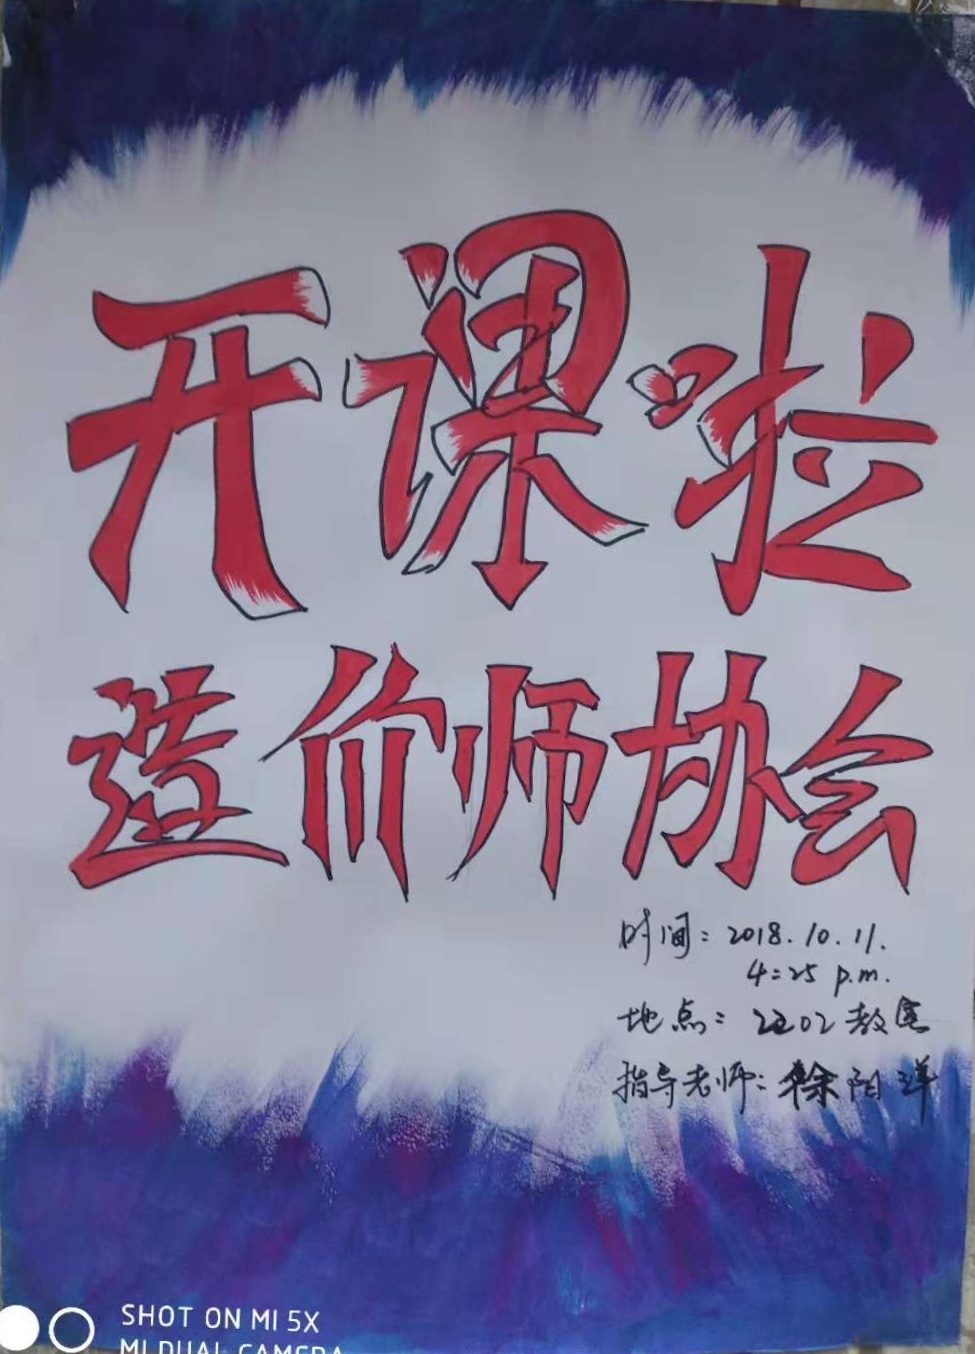 开课啦
造价师协会
时间：2018.10.11.
4:25 p.m.
地点：2202教室
指导老师：徐阳洋
SHOT ON MI 5X
MI DUAL CAMERA